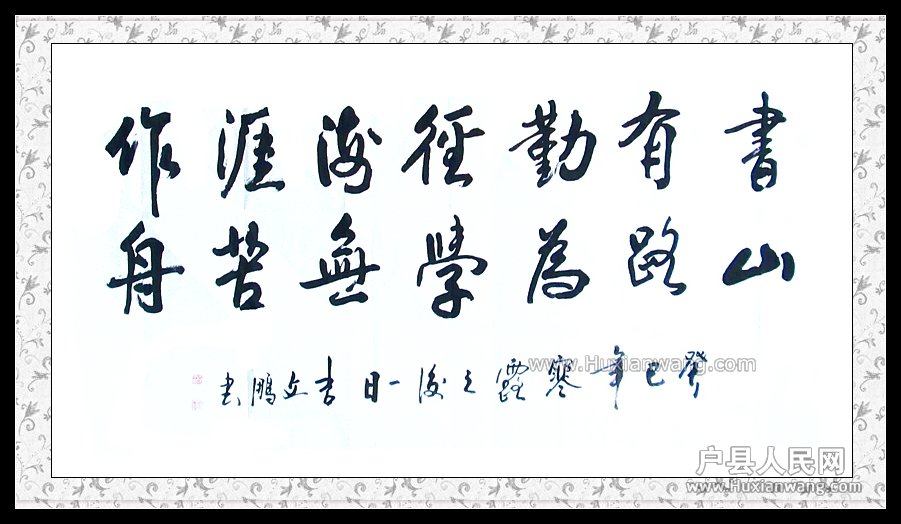 書山
有路
勤為
徑學
海無
涯苦
作舟
癸巳年寒露之後一日立鵬书
www.Huxianwang.com
户县人民网
www.Huxianwang.com